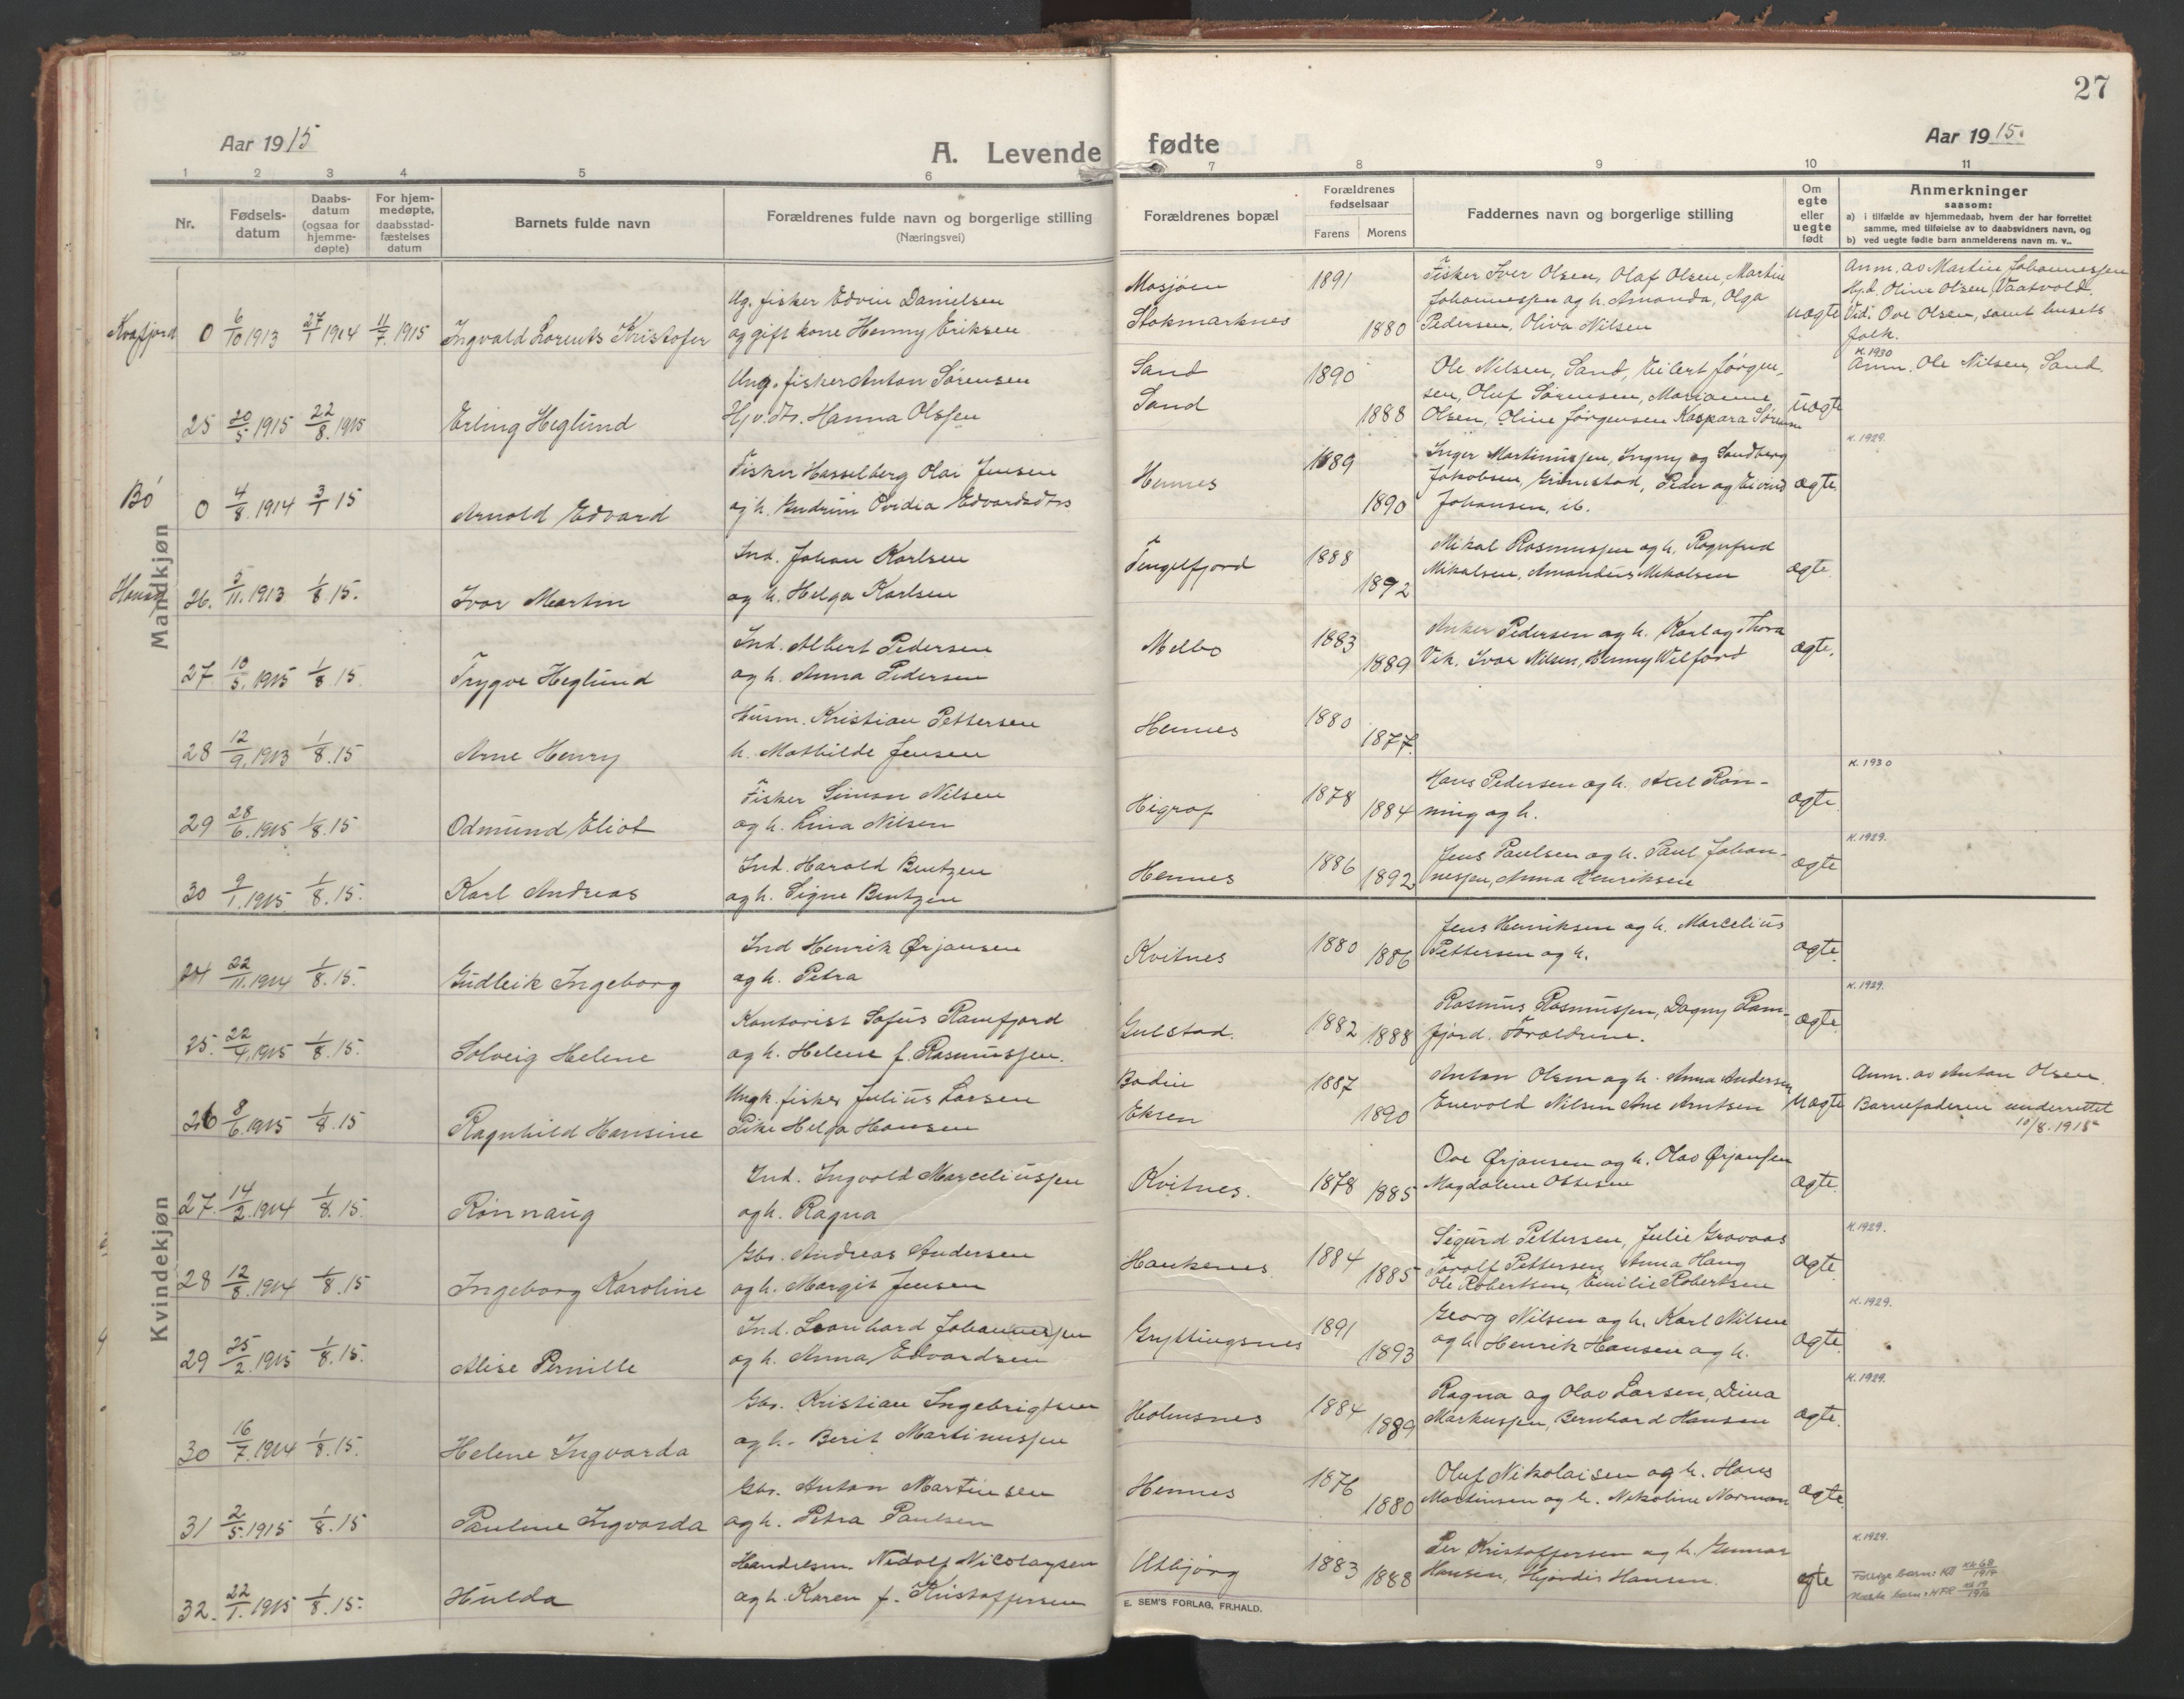 27
Aar 1915
A. Levende fødte
Aar 1915.
1 2 3 4 5 6 7 8 9 10 11
Nr.
Fødsels-
datum
Daabs-
datum
(ogsaa for
hjemme-
døpte)
For hjem-
medøpte,
daabsstad-
fæstelses
datum
Barnets fulde navn
Forældrenes fulde navn og borgerlige stilling
(Næringsvei)
Forældrenes bopæl
Forældrenes
fødselsaar
Farens Morens
Faddernes navn og borgerlige stilling
Om
egte
eller
uegte
født
Anmerkninger
saasom:
a) i tilfælde av hjemmedaab, hvem der har forrettet
samme, med tilføielse av to daabsvidners navn, og
b) ved uegte fødte barn anmelderens navn m. v..
Mandkjøn
Kvæfjord 0 6/10 1913 27/1 1914 11/7. 1915 Ingvald Lorents Kristofer
Ug. fisker Edvin Danielsen
og gift kone Henny Eriksen
Mosjøen 1891
Stokmarknes 1880
Fisker Iver Olsen, Olaf Olsen, Martin
Johannessen og h. Amanda, Olga
Pedersen, Oliva Nilsen
uægte
Anm. av Martin Johannessen
Hjd. Oline Olsen, Vaatvold.
Vid. Ove Olsen, samt husets
folk.
25 20/5 1915 22/8. 1915 Erling Heglund
Ung. fisker Anton Sørensen
Hjv. dtr. Hanna Olssen
Sand 1890
Sand 1888
Ole Nilsen, Sand, Eilert Jørgen-
sen, Oluf Sørensen, Marianne
Olsen, Oline Jørgensen Kaspara Sørensen
uægte
K. 1930
Anm. Ole Nilsen, Sand.
Bø 0 4/8. 1914 3/1 15 Arnold Edvard
Fisker Hasselberg Olai Jensen
og h. Gudrun Ovidia Edvardsdtr
Hennes 1889 1890
Inger Martinussen, Ingny og Sandberg
Jakobsen, Grimstad, Peder og Eivind
Johansen, ib.
ægte
K. 1929.
26. 5/11. 1913 1/8 15. Ivar Martin
Ind. Johan Karlsen
og h. Helga Karlsen
Fengelfjord 1888 1892
Mikal Rasmussen og h. Ragnfrid
Mikalsen, Amandus Mikalsen
ægte.
27 10/5. 1915 1/8 15. Trygve Heglund
Ind. Albert Pedersen
og h. Anna Pedersen
Melbo 1883 1889
Anker Pedersen og h. Karl og Thora
Vik, Ivar Nilsen, Henny Wilford
ægte.
28 12/9. 1913 1/8. 15 Arne Henry
Husm. Kristian Pettersen
h. Mathilde Jensen
Hennes 1880 1877.
29 28/6. 1915 1/8. 15 Odmund Eliot
Fisker Simon Nilsen
og h. Lina Nilsen
Higrof 1878 1884
Hans Pedersen og h. Axel Røn-
ning og h.
ægte.
K. 1930
30 9/1. 1915 1/8. 15. Karl Andreas
Ind. Harald Bentzen
og h. Signe Bentzen
Hennes 1886 1892
Jens Paulsen og h. Paul Johan-
nessen, Anna Henriksen
ægte
K. 1929.
Kvindekjøn
24 22/11. 1914 1/8. 15. Gudleik Ingeborg
Ind Henrik Ørjansen
og h. Petra
Kvitnes 1880 1886
Jens Henriksen og h. Marcelius
Pettersen og h.
ægte.
25. 22/4. 1915 1/8. 15. Solveig Helene
Kontorist Sofus Ramfjord
og h. Helene f. Rasmussen.
Gulstad. 1882 1888
Rasmus Rasmussen, Dagny Ram-
fjord. Forældrene.
ægte.
K. 1929.
26 8/6. 1915 1/8. 15 Ragnhild Hansine
Ungk. fisker Julius Larsen
Pike Helga Hansen
Bodin 1887
Eksen 1890
Anton Olsen og h. Anna Andersen
Enevold Nilsen Ane Arntsen
uægte
Anm. av Anton Olsen.
Barnefaderen underrettet
10/8. 1915
27. 14/2. 1914 1/8. 15. Rønnaug
Ind. Ingvald Marceliussen
og h. Ragna
Kvitnes. 1878 1885
Ove Ørjansen og h. Olav Ørjansen
Magdalene Ottesen
ægte.
28 12/8. 1914 1/8. 15 Ingeborg Karoline
Gbr. Andreas Andersen
og h. Margit Jensen
Haukenes 1884 1885
Sigurd Pettersen, Julie Gravaas
Toralf Pettersen, Anna Haug
Ole Robertsen, Emilie Robertsen
ægte.
K. 1929.
29 25/2. 1915 1/8. 15. Alise Pernille
Ind. Leonhard Johannessen
og h. Anna Edvardsen
Gryttingsnes 1891 1893
Georg Nilsen og h. Karl Nilsen
og h. Henrik Hansen og h.
ægte.
K. 1929.
30 16/7. 1914 1/8. 15. Helene Ingvarda
Gbr. Kristian Ingebrigtsen
og h. Berit Martinussen
Holmsnes 1884 1889
Ragna og Olav Larsen, Dina
Markussen, Bernhard Hansen
ægte.
K. 1929.
31 2/5. 1915 1/8. 15 Pauline Ingvarda
Gbr. Anton Martinsen
og h. Petra Paulsen
Hennes 1876 1880
Oluf Nikolaisen og h. Hans
Martinsen og h. Nikoline Norman
ægte.
32. 22/1. 1915 1/8. 15. Hulda
Handelsm. Nidolf Nicolaysen
og h. Karen f. Kristoffersen
Utbjörg 1883 1888
Per Kristoffersen og h. Gunnar
Hansen, Hjørdis Hansen.
egte
K. 1929.
E. SEM'S FORLAG, FR.HALD.